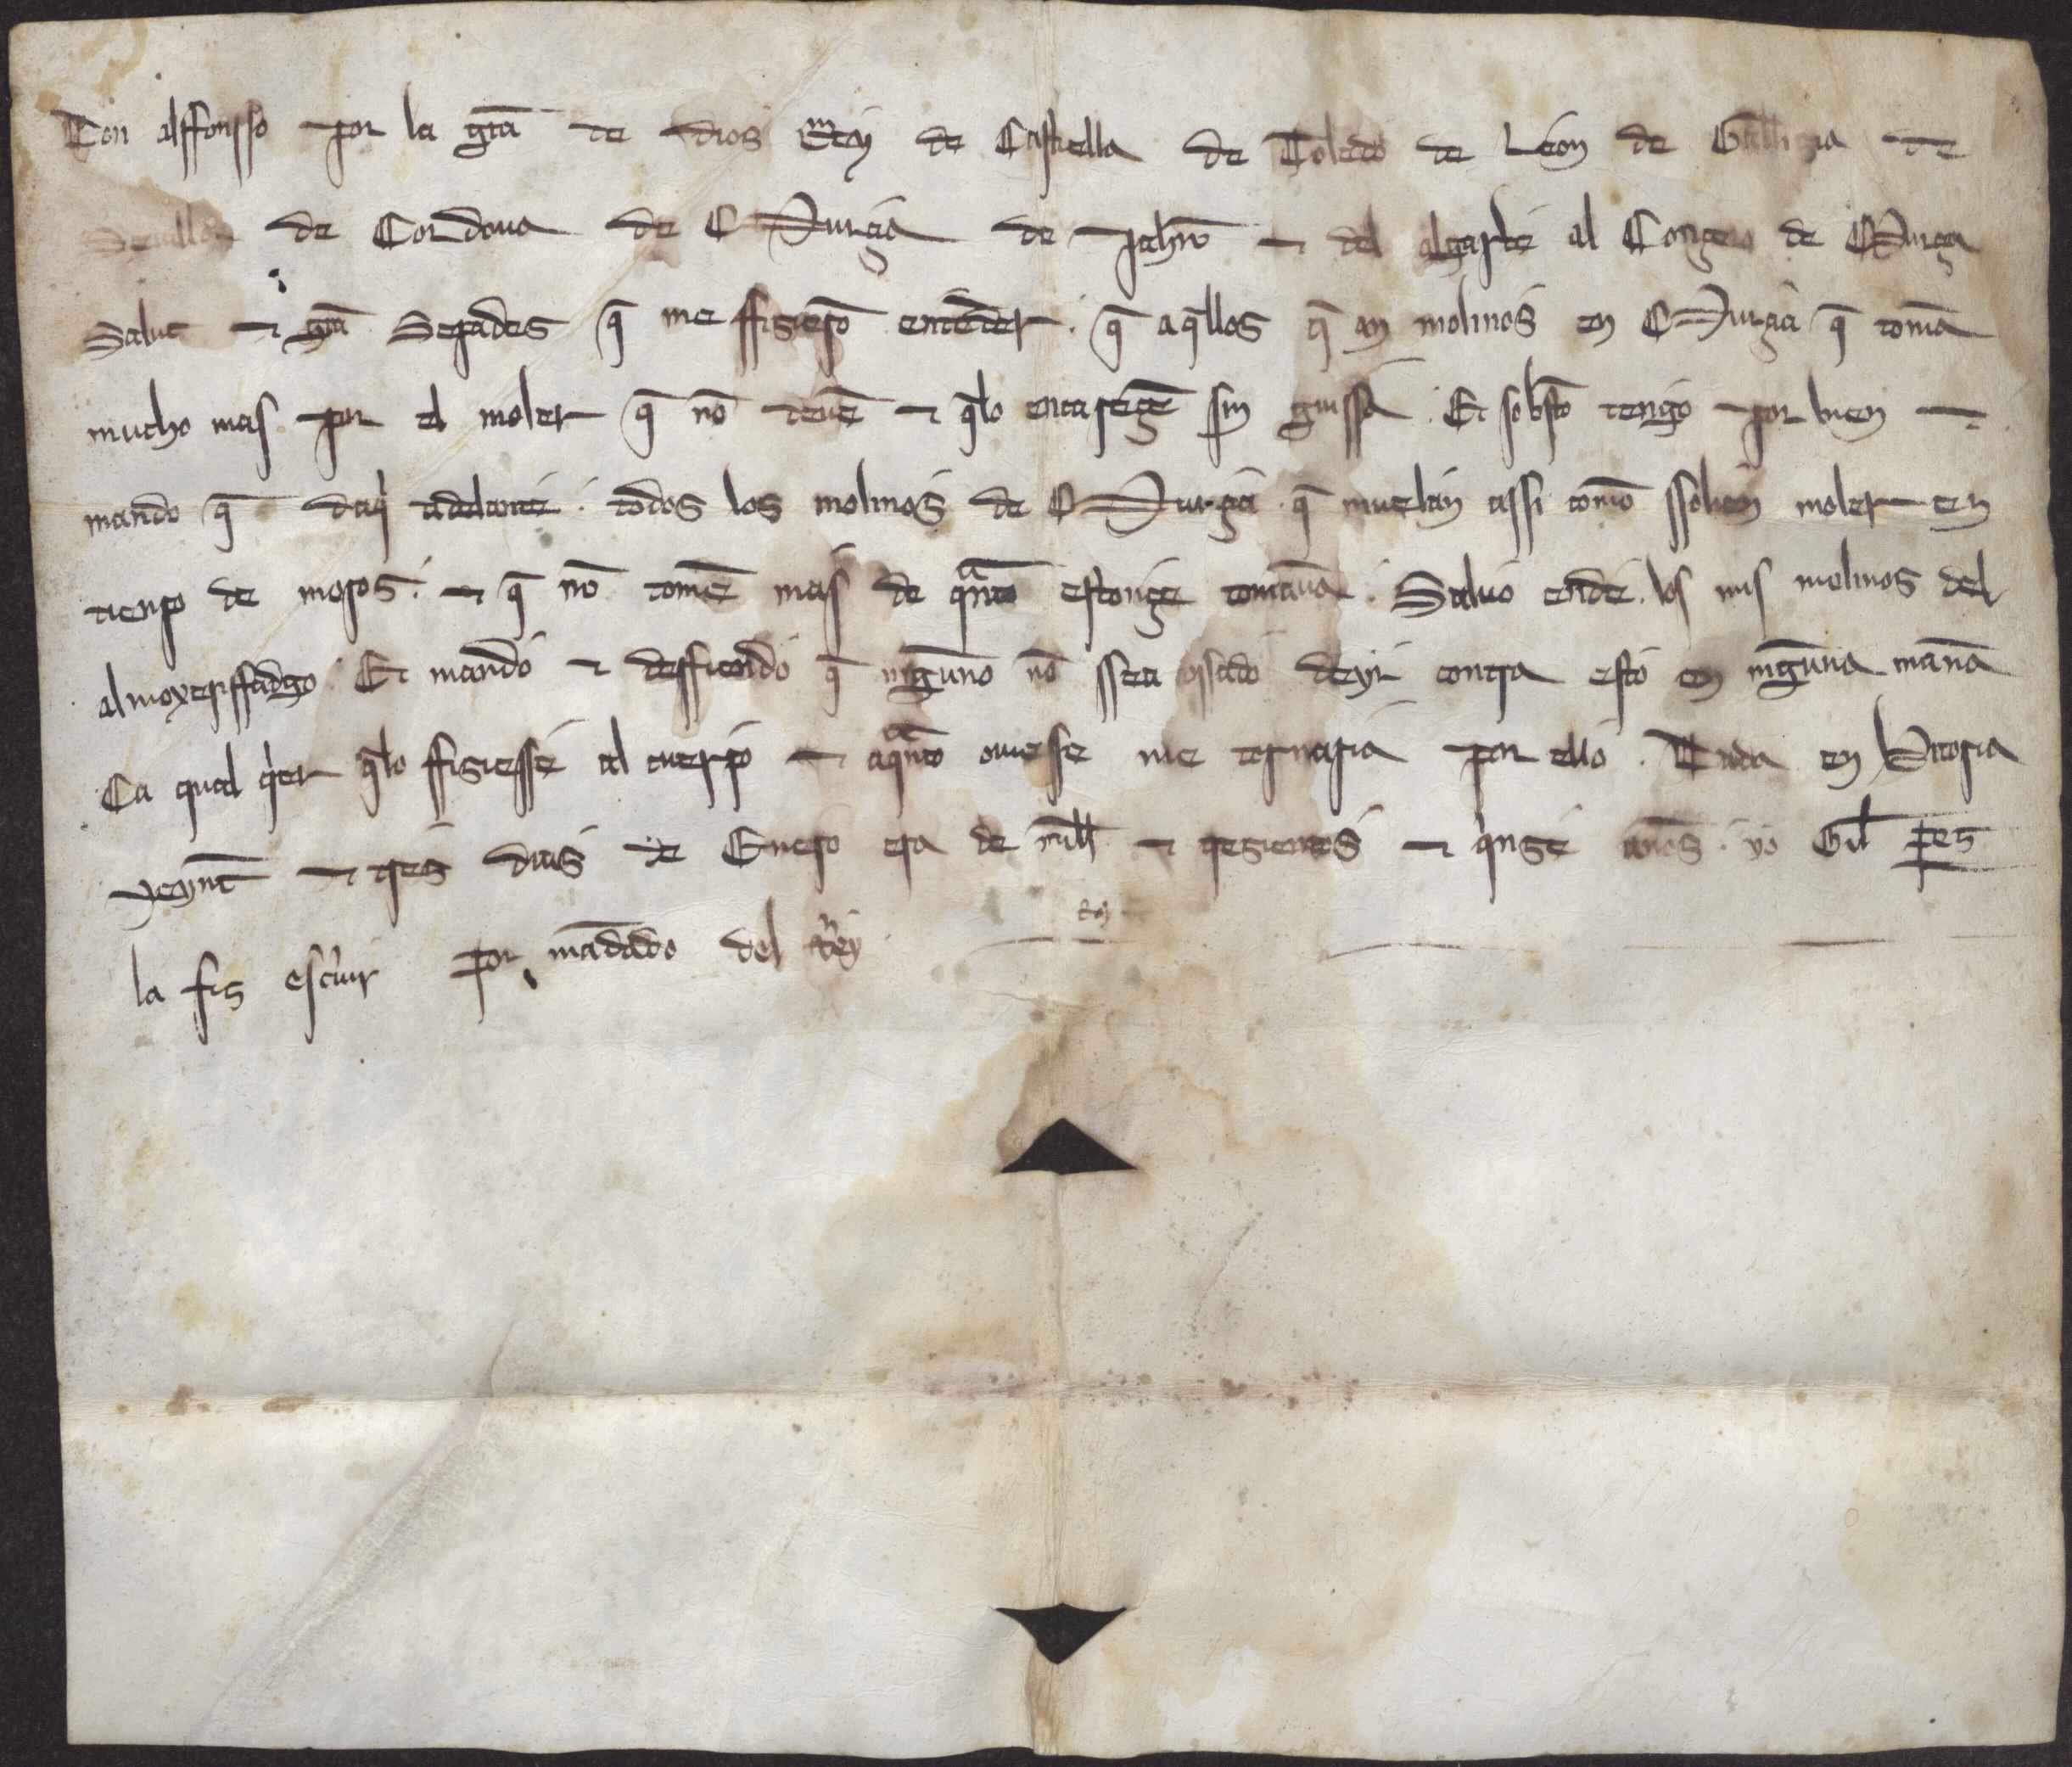 Don alffonsso por la gr̃a de dios Rey de Castiella de Toledo de Leon de Gallizia de
Seuilla de Cordoua de Murcia de Jahn̄ ⁊ del algarbe al Conçeio de Murçia
Salut ⁊ gr̃a Sepades q̄ me ffizierō entēder. q̄ aq̄llos q̄ an molinos en Murçia q̄ tomā
mucho mas por el moler q̄ nō deuē ⁊ q̄lo encareçē sin guissa. Et sobr̄sto tengo por bien ⁊
mando q̄ daq̍ adelante. todos los molinos de Murçia q̄ muelan assi comō ssolien moler en
tienpo de moros. ⁊ q̄ nō tomē mas de qᵃnto estonçe tomauā. Saluo ende. los mis molinos del
almoxeriffadgo. Et mando ⁊ deffiendo q̄ ninguno nō ssea ossado deyr contra esto en ninguna man̄a
Ca qual q̍er q̄lo ffiziesse al cuerpo ⁊ aqᵃnto ouiesse me tornaria por ello. Dada en Bitoria
veynt̄ ⁊ tres dias de Enero era de mill ⁊ trezientos ⁊ q̍nze anōs. yo Gil p̱ez
la fiz esc̍uir por mādado del Rey